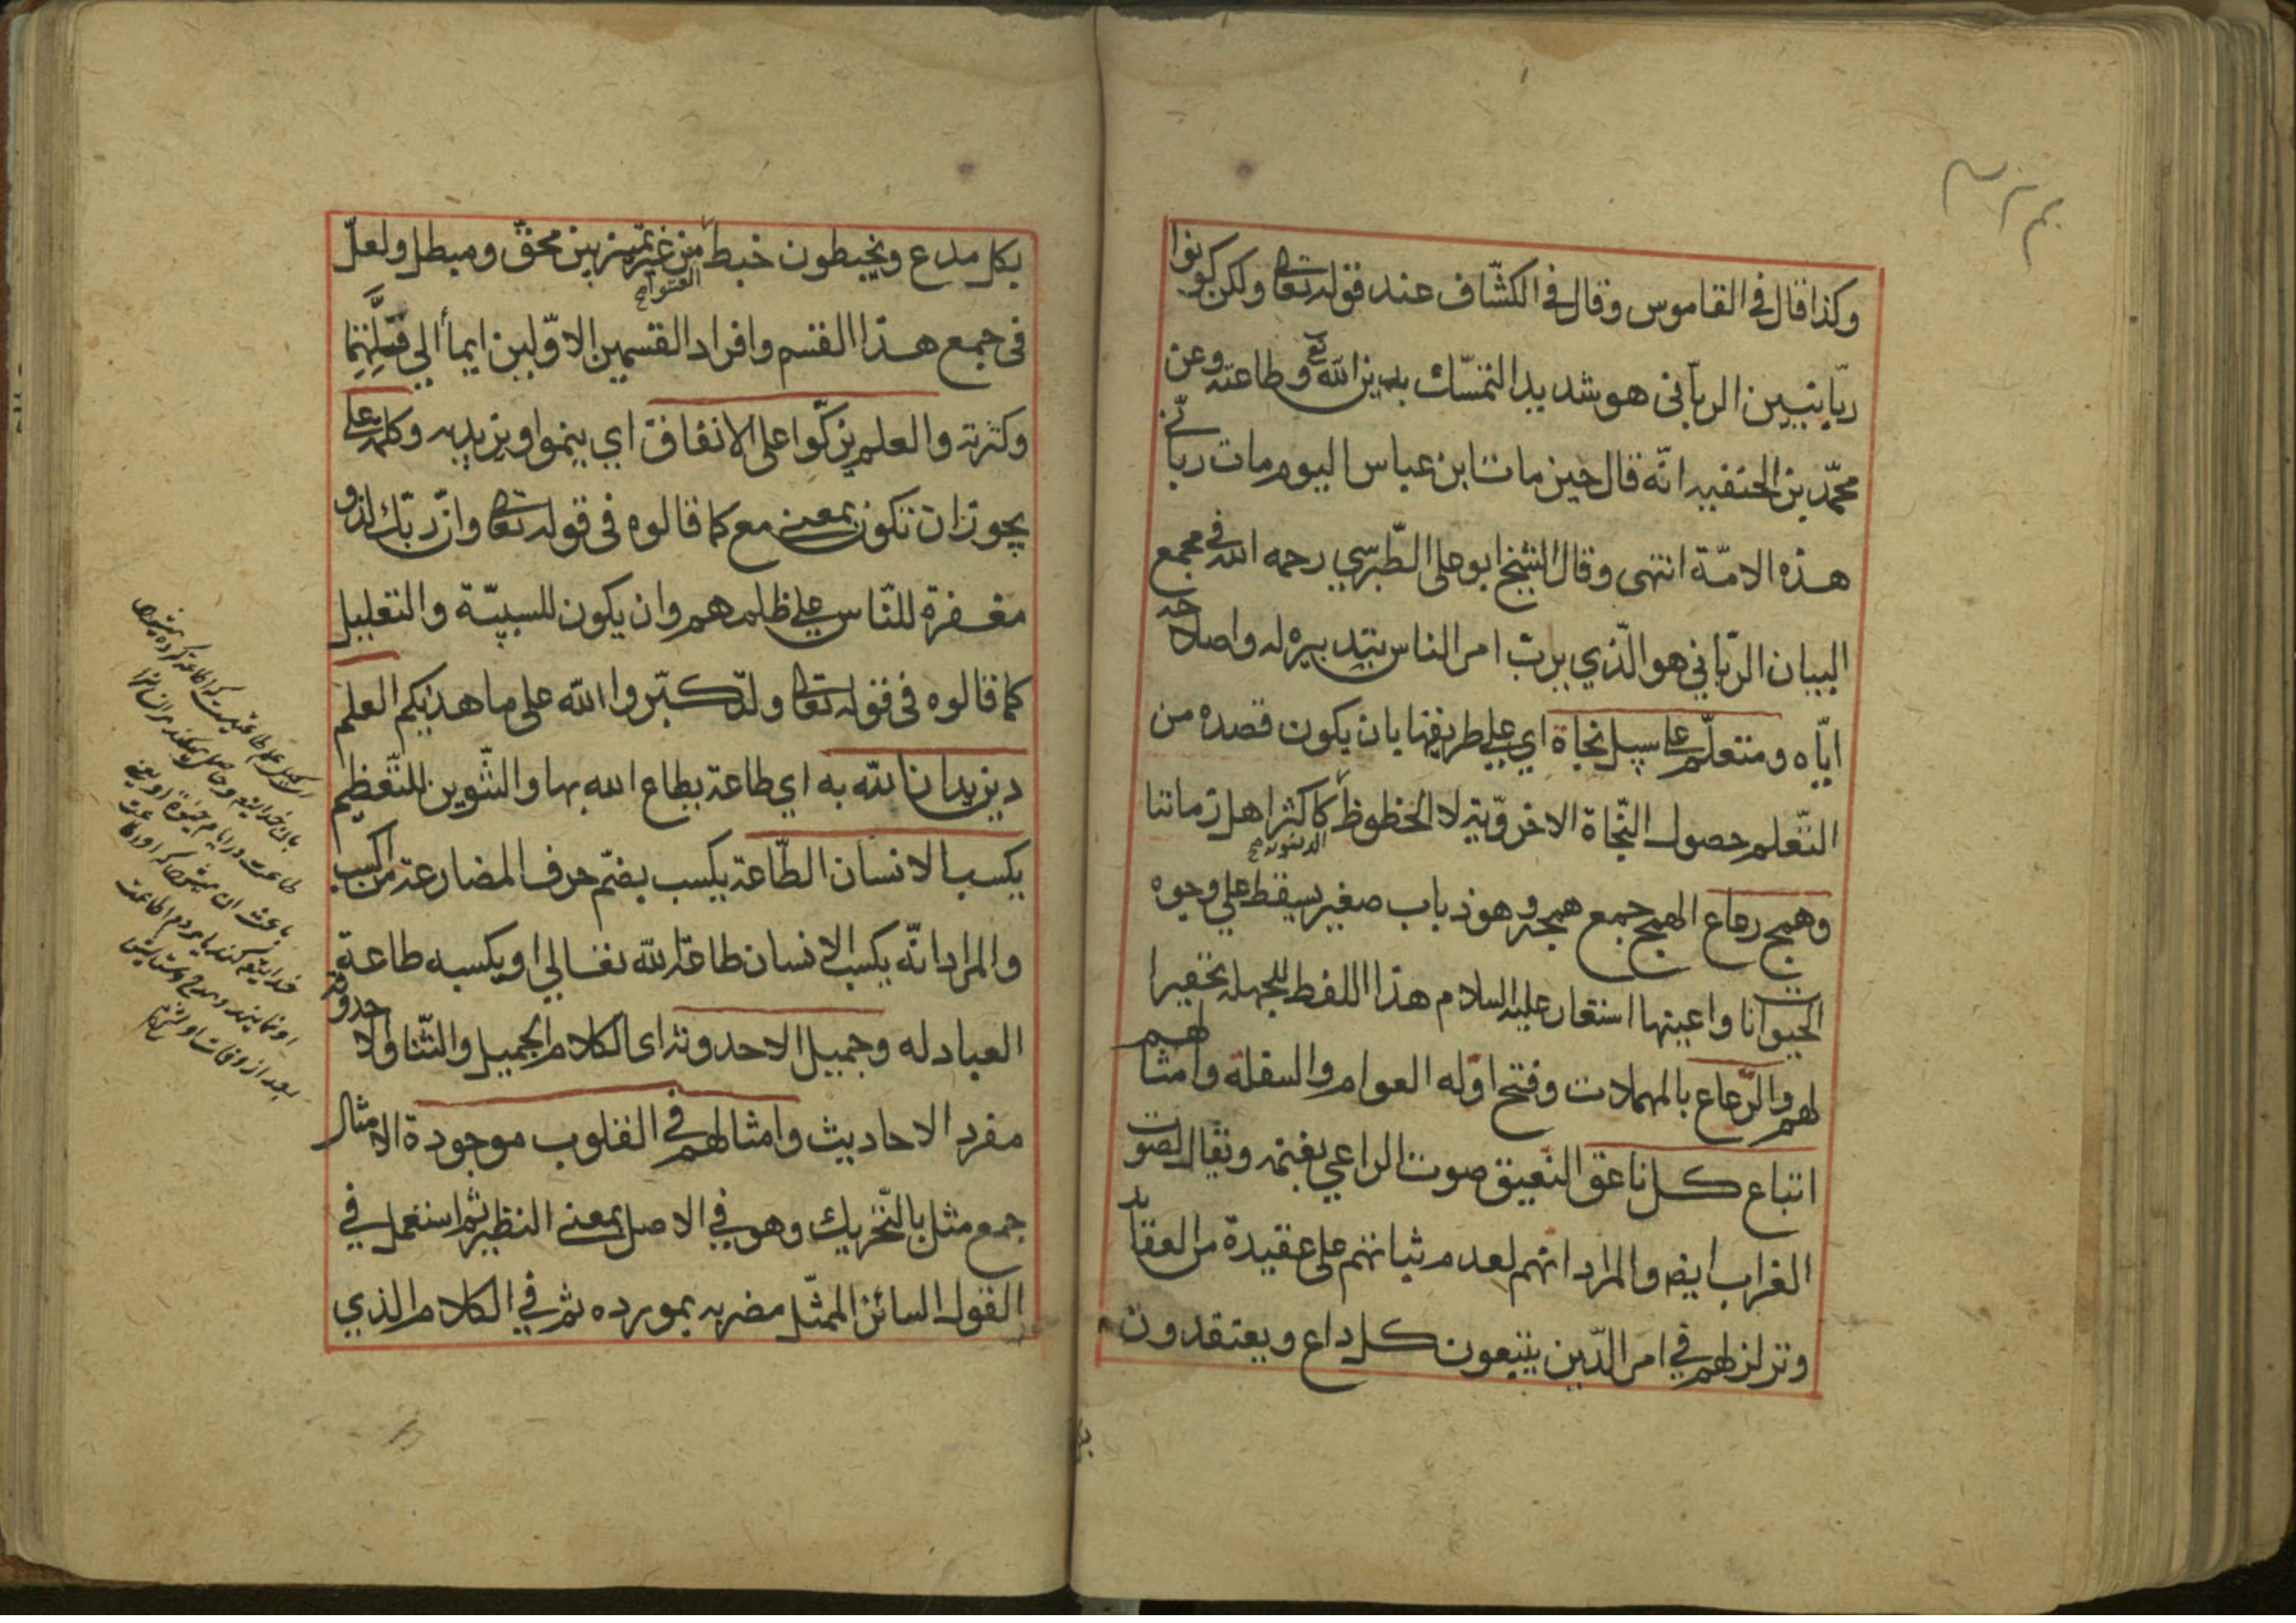 وكذا قال في القاموس وقال في الكشّاف عند قوله تعا ولكن كونوا
ربّانيين الربّاني هو شديد التمسّك بدين الله تع وطاعته وعن
محمّد بن الحنفيه انّه قال حين مات ابن عباس اليوم مات ربّانيّ
هذه الامّة انتهى وقال الشيخ ابو علي الطّبرسي رحمه الله في مجمع
البيان الرّبّاني هو الّذي يربّ امر الناس بتدبيره له واصلاحه
ايّاه ومتعلّم علي سبيل نجاة اي علي طريقها بان يكون قصده من
التّعلم حصول النّجاة الاخرويّة لا الحظوظ كاكثر اهل زماننا
الدنيويه صح
وهمج رعاع الهمج جمع همجة وهو ذباب صغير يسقط علي وجوه
الحيوانات واعينها استعار عليه السلام هذا اللفظ للجهله تحقيرا
لهم والرّعاع بالمهملات وفتح اوّله العوام والسفلة وامثالهم
اتباع كل ناعق النعيق صوت الراعي بغنمه ويقال لصوت
الغراب ايضه والمراد انهم لعدم ثباتهم علي عقيدة من العقايد
وتزلزلهم في امر الدّين يتبعون كل داع ويعتقدون
بكل مدع ويخبطون خبط من غير تميز بين محقّ ومبطل ولعلّ
العشواء صح
في جمع هذا القسم وافراد القسمين الاوّلين ايمأ الي قلّتهما
وكثرته والعلم يزكّوا علي الانفاق اي ينموا ويزيد به وكلمة علي
يجوز ان تكون بمعني مع كما قالوه في قوله تعا وانّ ربّك لذو
مغفرة للنّاس علي ظلمهم وان يكون للسببيّة والتعليل
كما قالوه في قوله تعا ولتكبّروا الله علي ما هديكم العلم
دين يدان لله به اي طاعة يطاع الله بها والتّنوين للتّعظيم
يكسب الانسان الطّاعة يكسب بضمّ حرف المضارعة من اكسب
والمراد انّه يكسب الانسان طاعة لله تعالي او يكسبه طاعة
العباد له وجميل الاحدوثة اي الكلام الجميل والثّنا والاحدوثة
مفرد الاحاديث وامثالهم في القلوب موجودة الامثال
جمع مثل بالتّحريك وهو في الاصل بمعني النظير ثم استعمل في
القول السائر الممثّل مضربه بمورده ثم في الكلام الذي